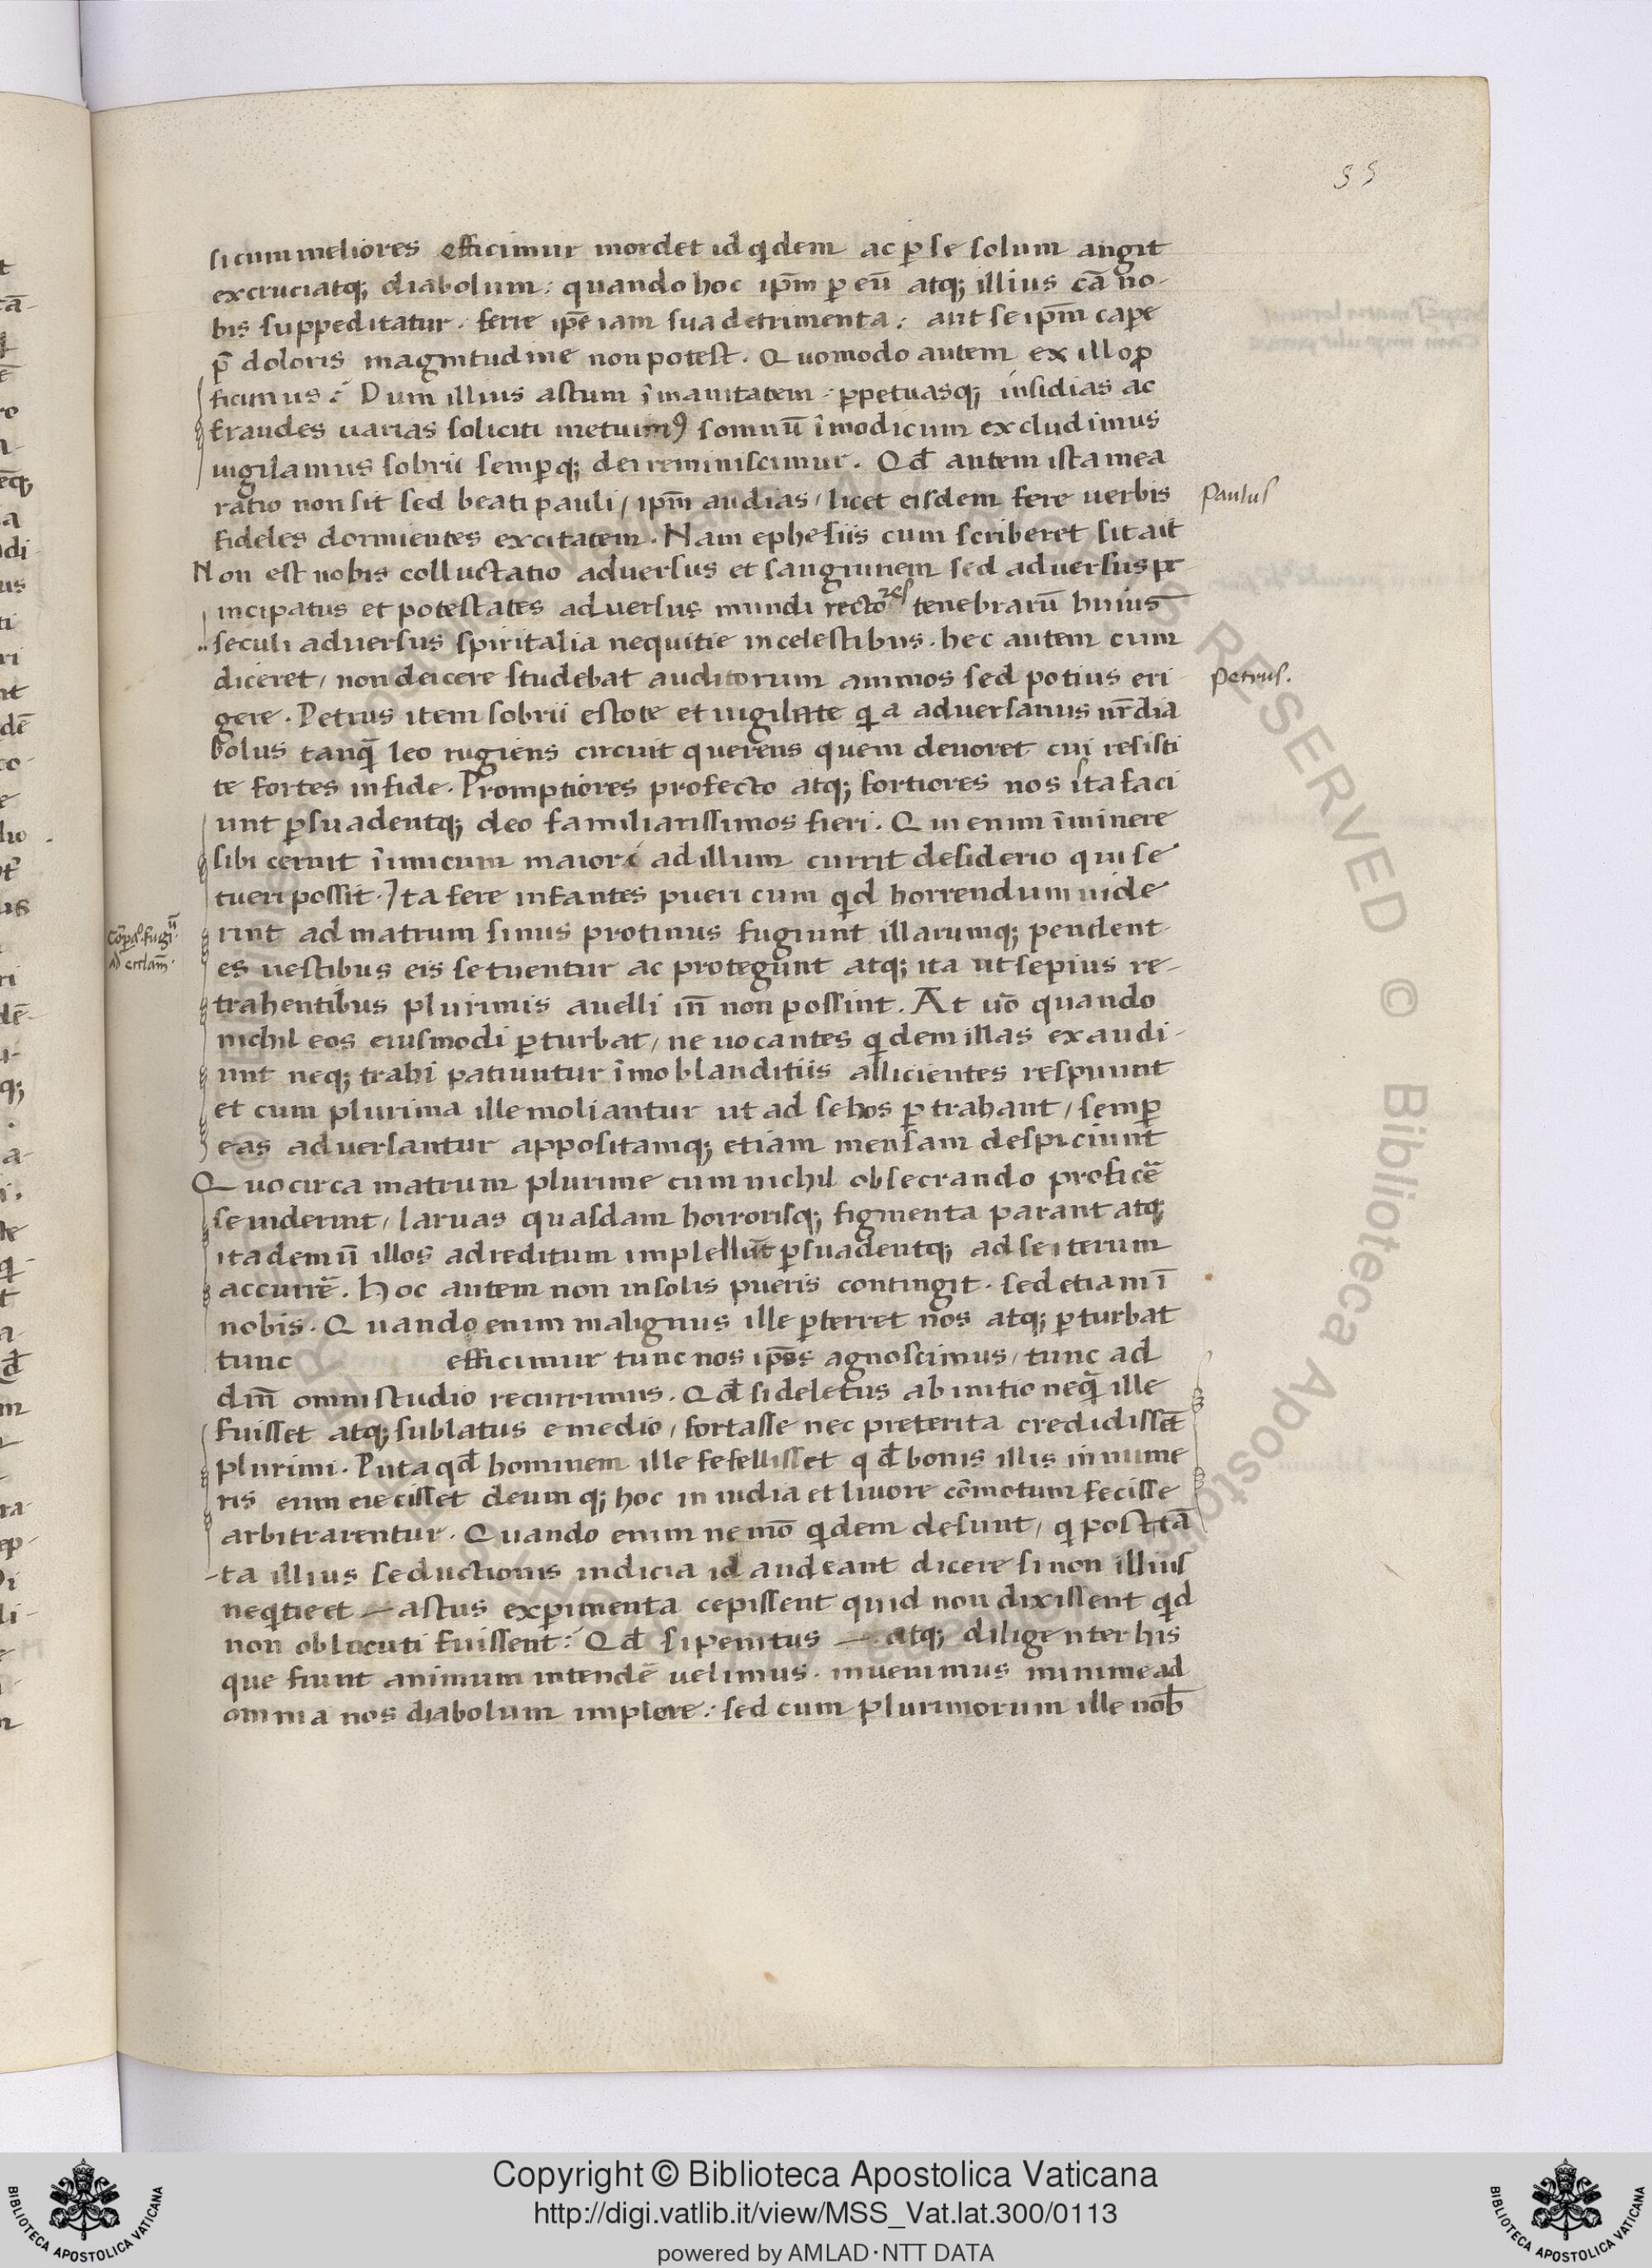 55
si cum meliores efficimur mordet id qdem ac p se solum angit
excruciatq; diabolum: quando hoc ipm p eu atq; illius ca no-
bis suppeditatur. ferre ipe iam sua detrimenta: aut se ipm cape
p doloris magnitudine non potest. Quomodo autem ex illo p
ficimus? Dum illius astum imanitatem ppetuasq; insidias ac
fraudes uarias soliciti metuim9 somnu imodicum excludimus
uigilamus sobrii sempq; dei reminiscimur. Qd autem ista mea
ratio non sit sed beati pauli/ ipm audias/ licet eisdem fere uerbis
Paulus
fideles dormientes excitatem. Nam ephesiis cum scriberet sit ait
Non est nobis colluctatio aduersus et sanguinem sed aduersus pr
incipatus et potestates aduersus mundi rectores tenebraru huius
seculi aduersus spiritalia nequitie in celestibus. hec autem cum
diceret/ non deicere studebat auditorum animos sed potius eri
Petrus.
gere. Petrus item sobrii estote et uigilate qi a aduersarius nr dia
bolus tanq leo rugiens circuit querens quem deuoret cui resisti
te fortes in fide. Promptiores profecto atq; fortiores nos ista faci
unt psuadentq; deo familiarissimos fieri. Qui enim iminere
sibi cernit iimicum maiori ad illum currit desiderio qui se
tueri possit. Ita fere infantes pueri cum qd horrendum uide
rint ad matrum sinus protinus fugiunt illarumq; pendent
es uestibus eis se tuentur ac protegunt atq; ita ut sepius re-
trahentibus plurimis auelli in non possint. At uo quando
nichil eos eiusmodi pturbat/ ne uocantes qdem illas exaudi-
unt neq; trahi patiuntur imo blanditiis allicientes respuunt
et cum plurima ille moliantur ut ad se hos ptrahant/ semp
eas aduersantur appositamq; etiam mensam despiciunt
Quocirca matrum plurime cum nichil obsecrando profice
se uiderint/ laruas quasdam horrorisq; figmenta parant atq;
ita demu illos ad reditum impellut psuadentq; ad se iterum
accurre. Hoc autem non in solis pueris contingit. sed etiam i
nobis. Quando enim malignus ille pterret nos atq; pturbat
tunc efficimur tunc nos ipsos agnoscimus/ tunc ad
dm omni studio recurrimus. Qd si deletus ab initio neq ille
fuisset atq; sublatus e medio/ fortasse nec preterita credidisset
plurimi. Puta qd hominem ille fefellisset qd bonis illis innume
ris eum eiecisset deumq; hoc inuidia et liuore comotum fecisse
arbitrarentur. Quando enim nemo qdem desunt/ qi post ta
-ta illius seductionis indicia id audeant dicere si non illius
neqtie et — astus expimenta cepissent quid non dixissent qd
non oblocuti fuissent? Qd si penitus — atq; diligenter his
que fiunt animum intende uelimus. inuenimus minime ad
omnia nos diabolum implere: sed cum plurimorum ille nob
Copyright © Biblioteca Apostolica Vaticana
http://digi.vatlib.it/view/MSS_Vat.lat.300/0113
powered by AMLAD·NTT DATA